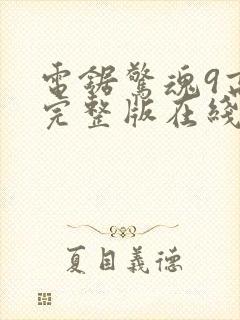 電鋸驚魂9高
完整版在綫
夏目義德